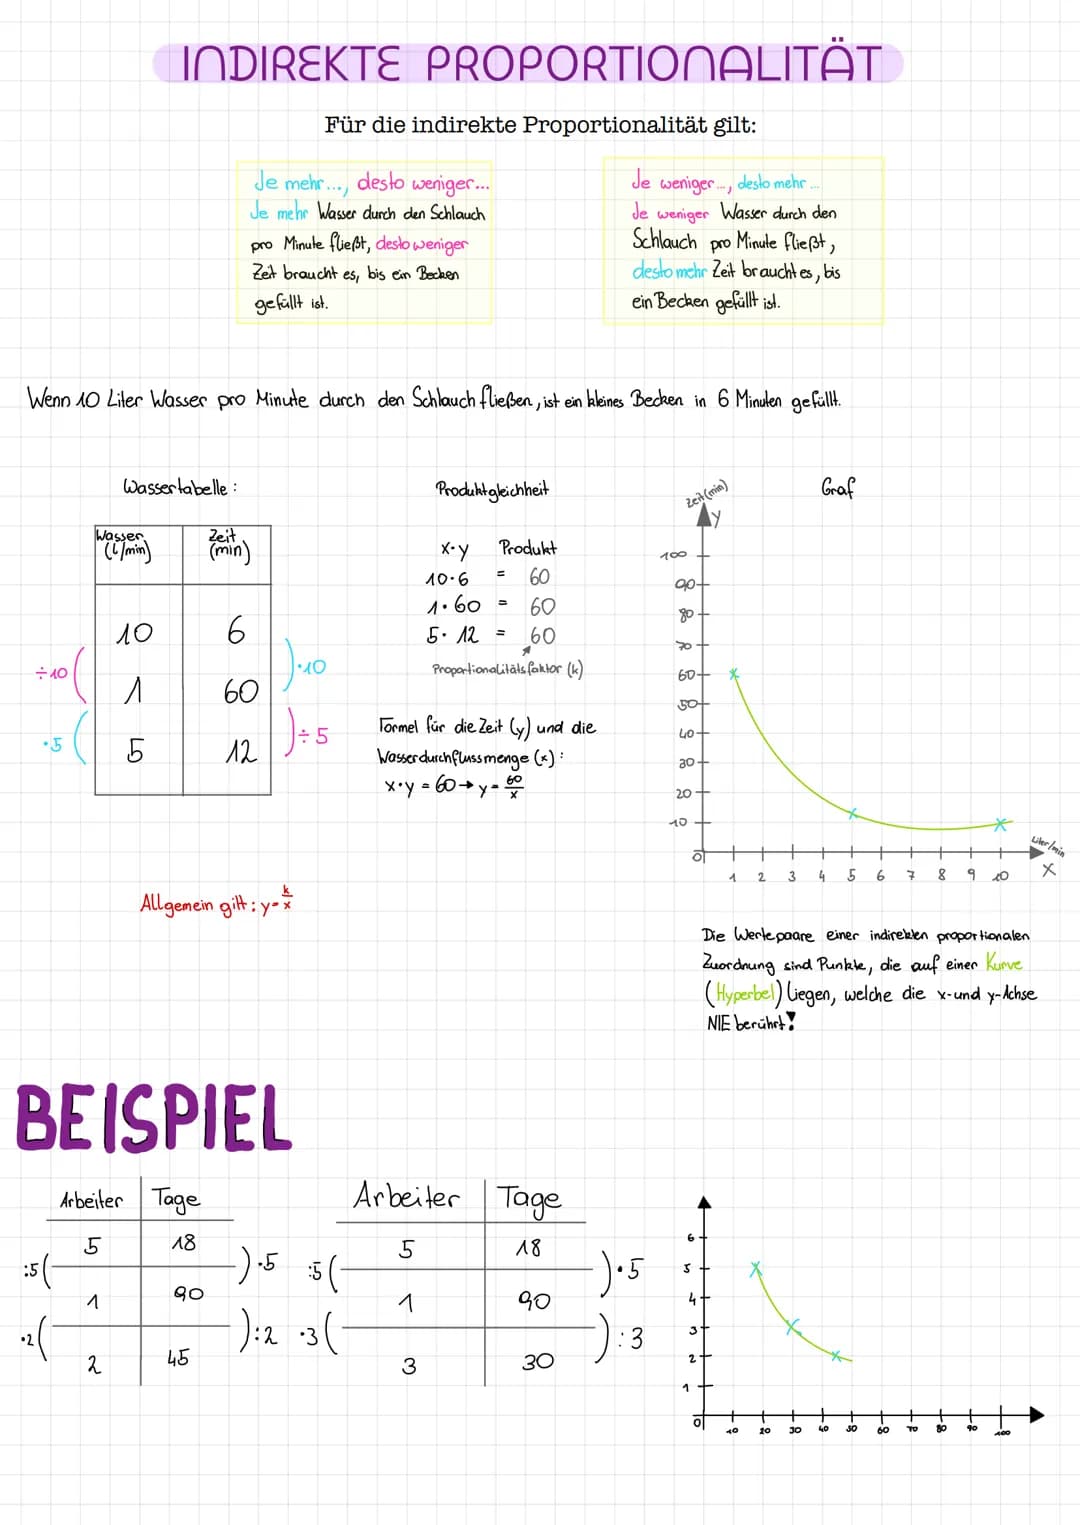 INDIREKTE PROPORTIONALITÄT
Für die indirekte Proportionalität gilt:
Je mehr..., desto weniger...
Je mehr Wasser durch den Schlauch
pro Minute fließt, desto weniger
Zeit braucht es, bis ein Becken
gefüllt ist.
Je weniger..., desto mehr...
Je weniger Wasser durch den
Schlauch pro Minute fließt,
desto mehr Zeit braucht es, bis
ein Becken gefüllt ist.
Wenn 10 Liter Wasser pro Minute durch den Schlauch fließen, ist ein kleines Becken in 6 Minuten gefüllt.
Wassertabelle:
Wasser (L/min) Zeit (min)
10 6
÷10 ·10
1 60
·5 ÷5
5 12
Allgemein gilt: y = k/x
Produktgleichheit
x·y Produkt
10·6 = 60
1·60 = 60
5·12 = 60
Proportionalitätsfaktor (k)
Formel für die Zeit (y) und die
Wasserdurchflussmenge (x):
x·y = 60 → y = 60/x
Graf
Zeit (min)
y
100
90
80
70
60
50
40
30
20
10
0
1 2 3 4 5 6 7 8 9 10
Liter/min
x
Die Wertepaare einer indirekten proportionalen
Zuordnung sind Punkte, die auf einer Kurve
(Hyperbel) liegen, welche die x-und y-Achse
NIE berührt!
BEISPIEL
Arbeiter Tage
5 18
:5 ·5
1 90
·2 :2
2 45
Arbeiter Tage
5 18
:5 ·5
1 90
·3 :3
3 30
6
5
4
3
2
1
0
10 20 30 40 50 60 70 80 90 100